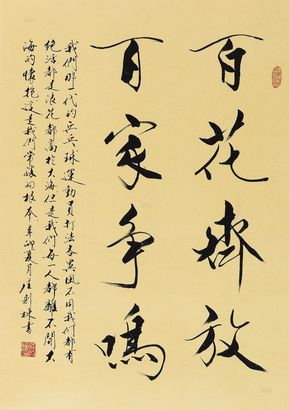 百花齊放
百家争鳴
我們那一代的乒乓球運動員打法各異風不同我們都有
絕活都是浪花都高於大海但是我們每一人都離不開大
海的懷抱這是我們常勝的根本辛卯夏月庄則棟書